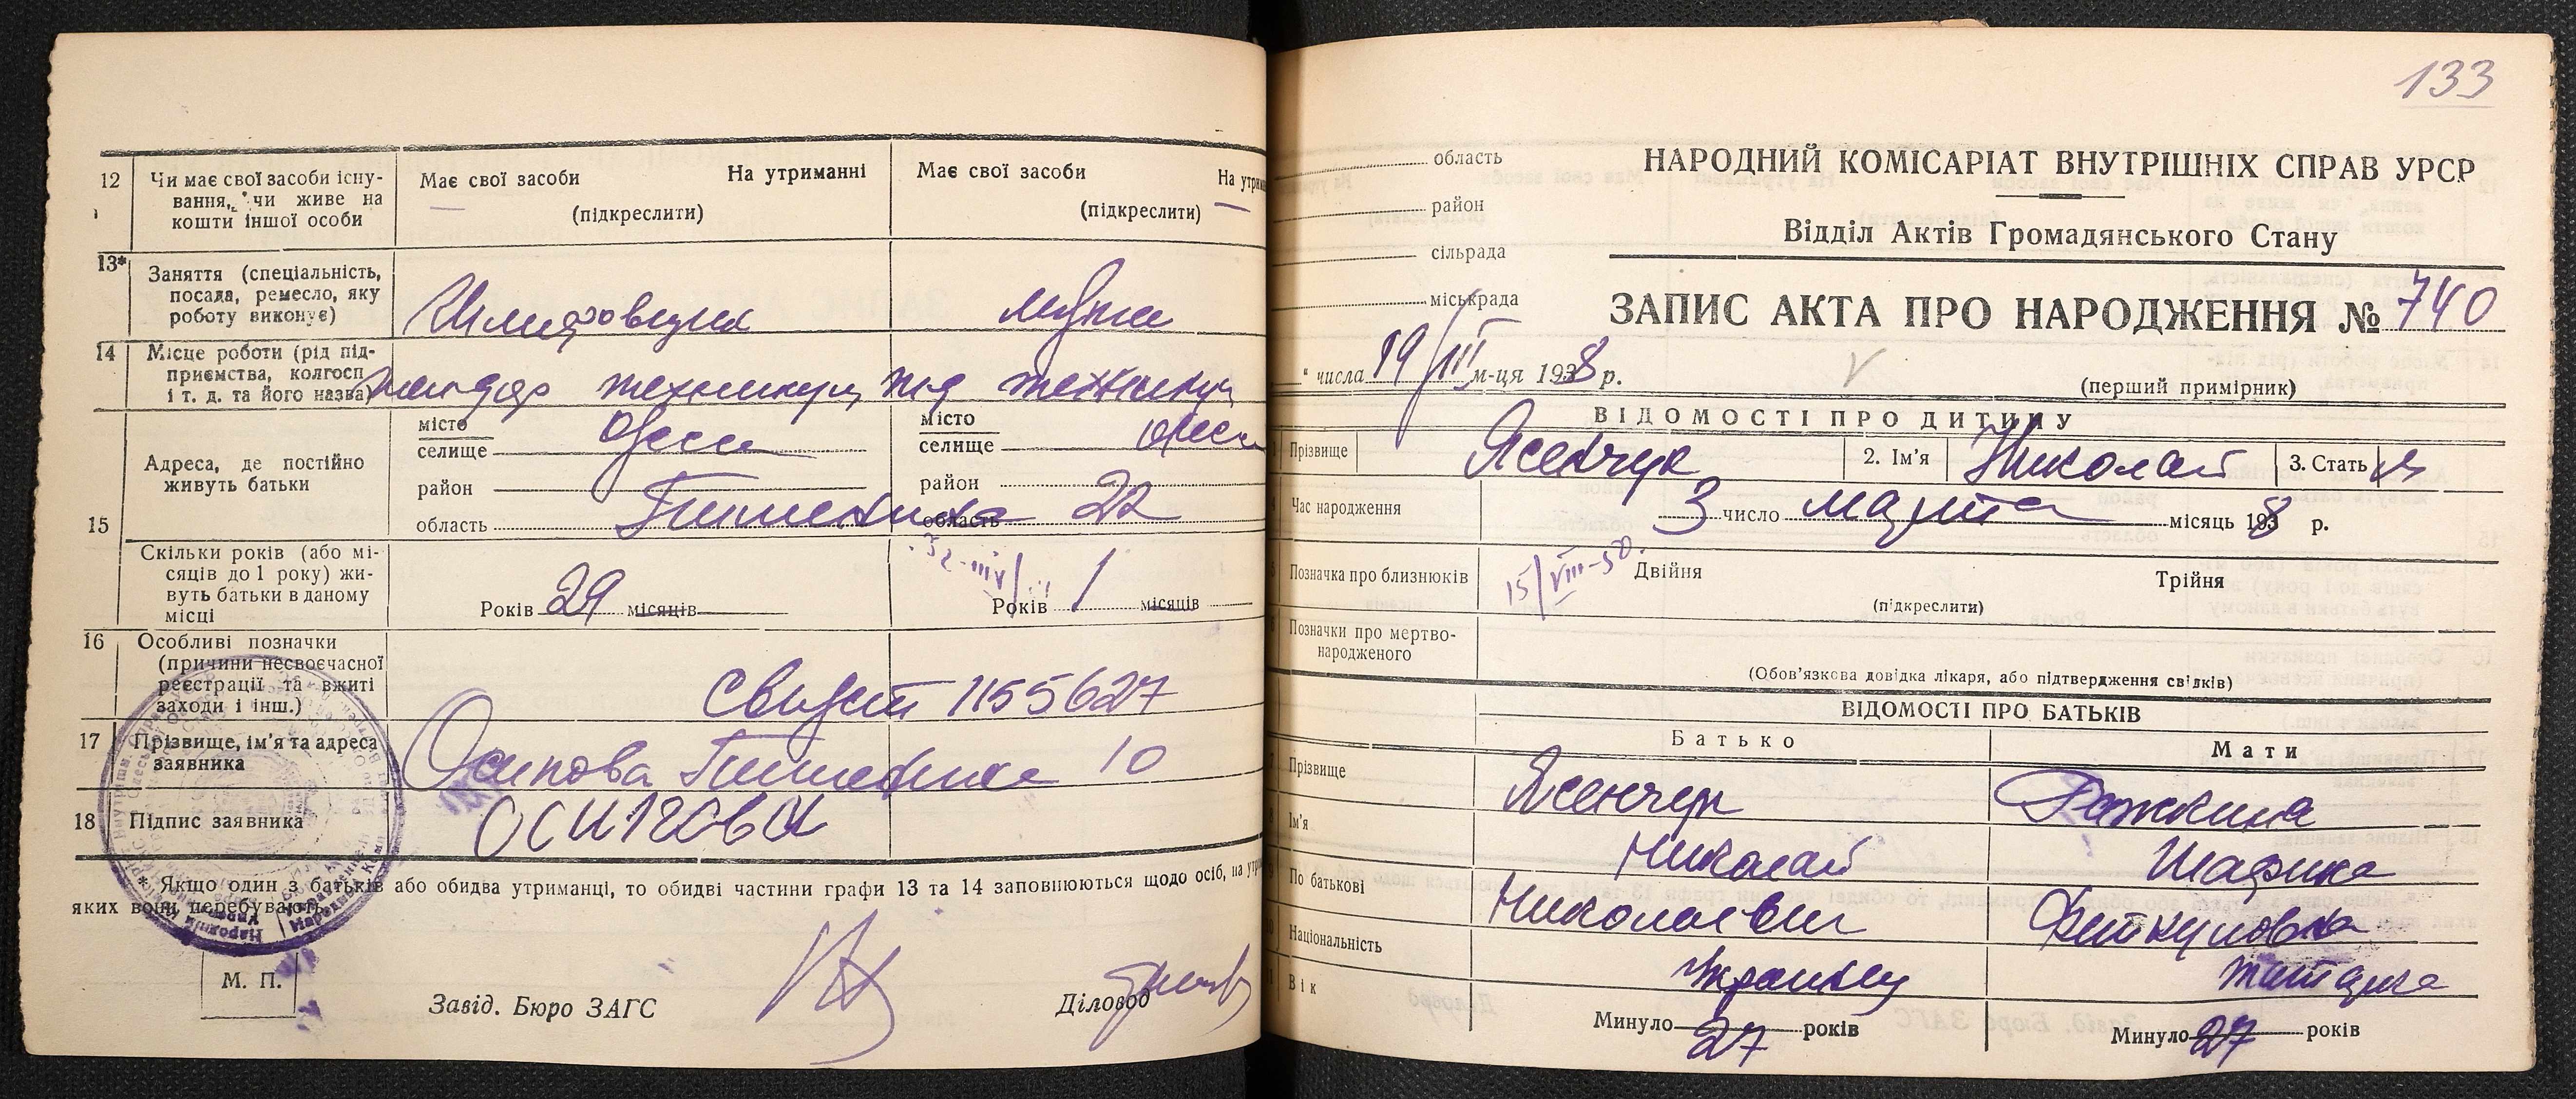 12 Чи має свої засоби існу-
вання, чи живе на
кошти іншої особи
Має свої засоби На утриманні
(підкреслити)
Має свої засоби На утрим
(підкреслити)
13* Заняття (спеціальність,
посада, ремесло, яку
роботу виконує)
14 Місце роботи (рід під-
приємства, колгосп
і т. д. та його назва)
техникум
15 Адреса, де постійно
живуть батьки
місто
селище Одесса
район
область
місто
селище Одесса
район
область 22
Скільки років (або мі-
сяців до 1 року) жи-
вуть батьки в даному
місці
Років 29 місяців
Років 1 місяців
16 Особливі позначки
(причини несвоєчасної
реєстрації та вжиті
заходи і інш.)
1155627
17 Прізвище, ім'я та адреса
заявника
Осипова 10
18 Підпис заявника
Осипова
* Якщо один з батьків або обидва утриманці, то обидві частини графи 13 та 14 заповнюються щодо осіб, на утри
яких вони перебувають.
М. П.
Завід. Бюро ЗАГС
Діловод
133
область
район
сільрада
міськрада
НАРОДНИЙ КОМІСАРІАТ ВНУТРІШНІХ СПРАВ УРСР
Відділ Актів Громадянського Стану
ЗАПИС АКТА ПРО НАРОДЖЕННЯ № 740
" числа 19/III м-ця 1938 р.
(перший примірник)
ВІДОМОСТІ ПРО ДИТИНУ
Прізвище Ясенчук 2. Ім'я Николай 3. Стать м
Час народження 3 число марта місяць 1938 р.
Позначка про близнюків 15/VIII-50. Двійня Трійня
(підкреслити)
Позначки про мертво-
народженого
(Обов'язкова довідка лікаря, або підтвердження свідків)
ВІДОМОСТІ ПРО БАТЬКІВ
Батько Мати
Прізвище Ясенчук
Ім'я Николай
По батькові Николаевич
Національність Украинец татарка
Вік Минуло 27 років Минуло 27 років